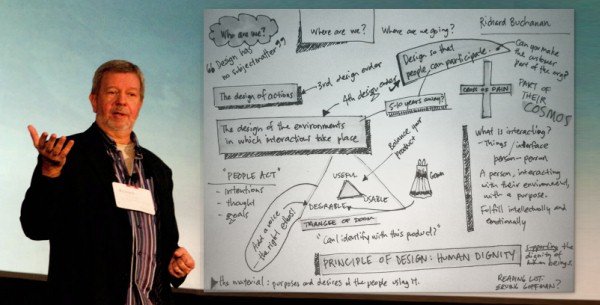 Who are we?
Where are we?
Where are we going?
Richard Buchanan
“Design has
no subject matter”
Design so that
people can participate.
Can you make
the customer
part of the org?
3rd design order
4th design order
The design of actions
5-10 years away?
CROSS OF PAIN
PART OF
THEIR
COSMOS
The design of the environments
in which interactions take place
Balance your
product
What is interacting?
- Things / interface
person - person
"PEOPLE ACT"
- intentions
- thought
- goals
USEFUL
USABLE
DESIRABLE
A person, interacting
with their environment,
with a purpose.
Fulfill intellectually and
emotionally
Add a voice
the right ethos!
TRIANGLE OF DOOM
"Can I identify with this product?"
PRINCIPLE OF DESIGN: HUMAN DIGNITY
Supporting the
dignity of
human beings.
The material: purposes and desires of the people using it.
READING LIST
ERVING GOFFMAN?